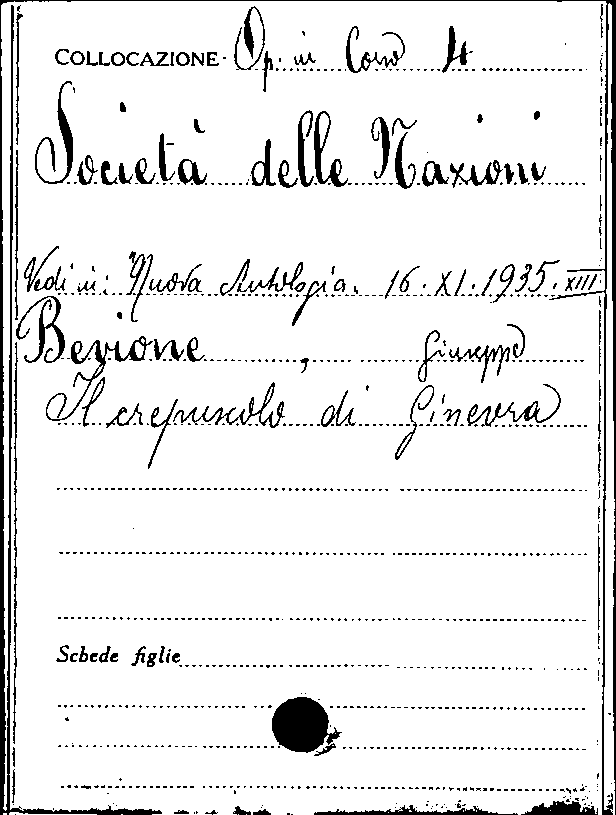 COLLOCAZIONE Op. in Corso 4
Società delle Nazioni
Vedi in: Nuova Antologia. 16.XI.1935.XIII
Bevione, Giuseppe
Il crepuscolo di Ginevra
Schede figlie